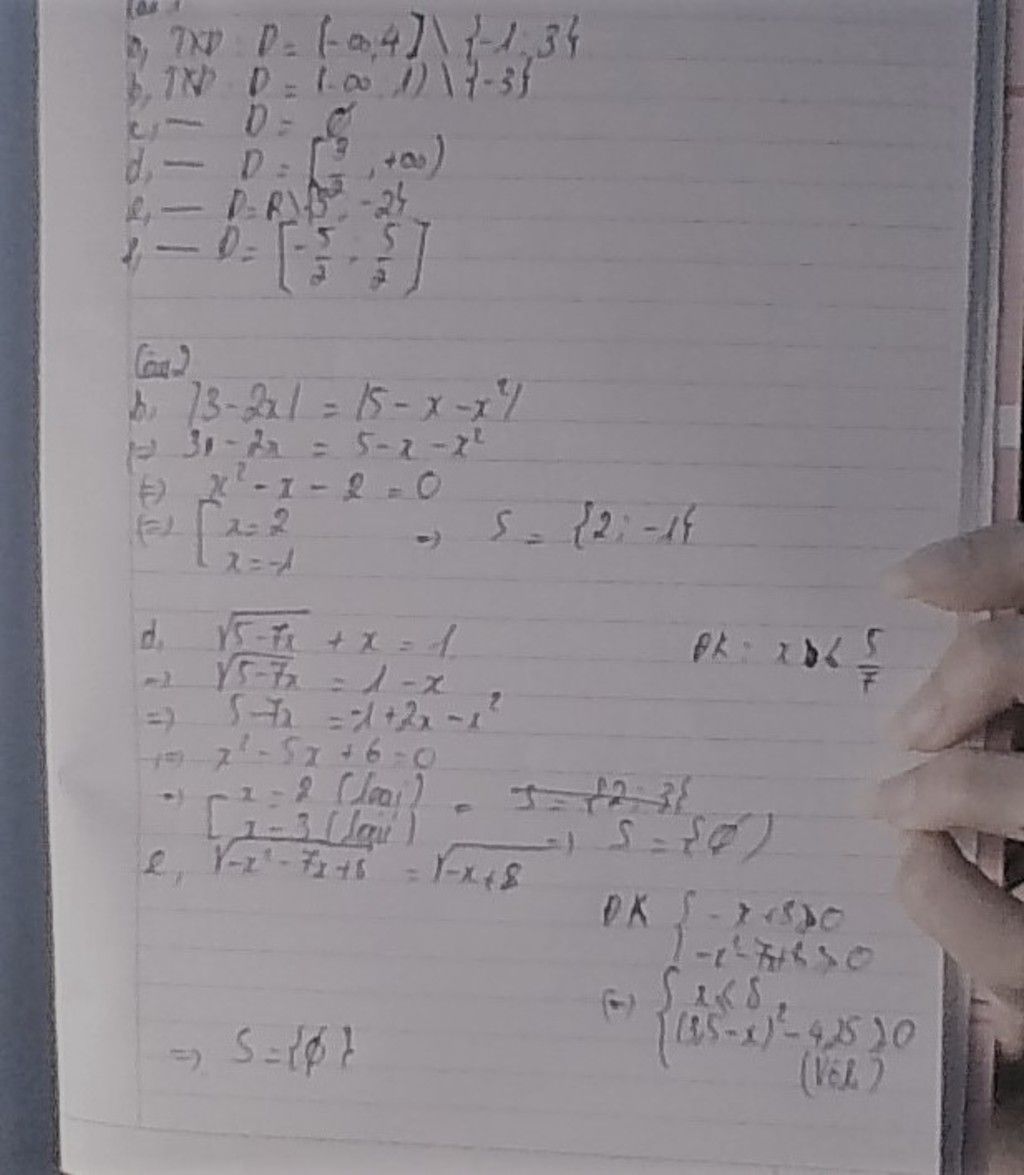 a, TXD D = (-∞, 4] \ {-1; 3}
b, TXD D = (-∞, 1) \ {-3}
c, — D = ∅
d, — D = [ , +∞)
e, — D = R \ {5; -2}
f, — D = [-5/2; 5/2]
Câu 2
b, |3 - 2x| = |5 - x - x²|
=> 3 - 2x = 5 - x - x²
<=> x² - x - 2 = 0
<=> [ x = 2
x = -1 => S = {2; -1}
d, √5-7x + x = 1 ĐK: x ≤ 5/7
=> √5-7x = 1 - x
=> 5-7x = -1+2x - x²
<=> x² - 5x + 6 = 0
=> [ x = 2 (loại) S = {2; 3}
x = 3 (loại) => S = {∅}
e, √-x²-7x+8 = √-x+8
ĐK { -x+8 ≥ 0
-x²-7x+8 ≥ 0
<=> { x ≤ 8
(3,5-x)² - 4,25 ≥ 0
=> S = {∅}